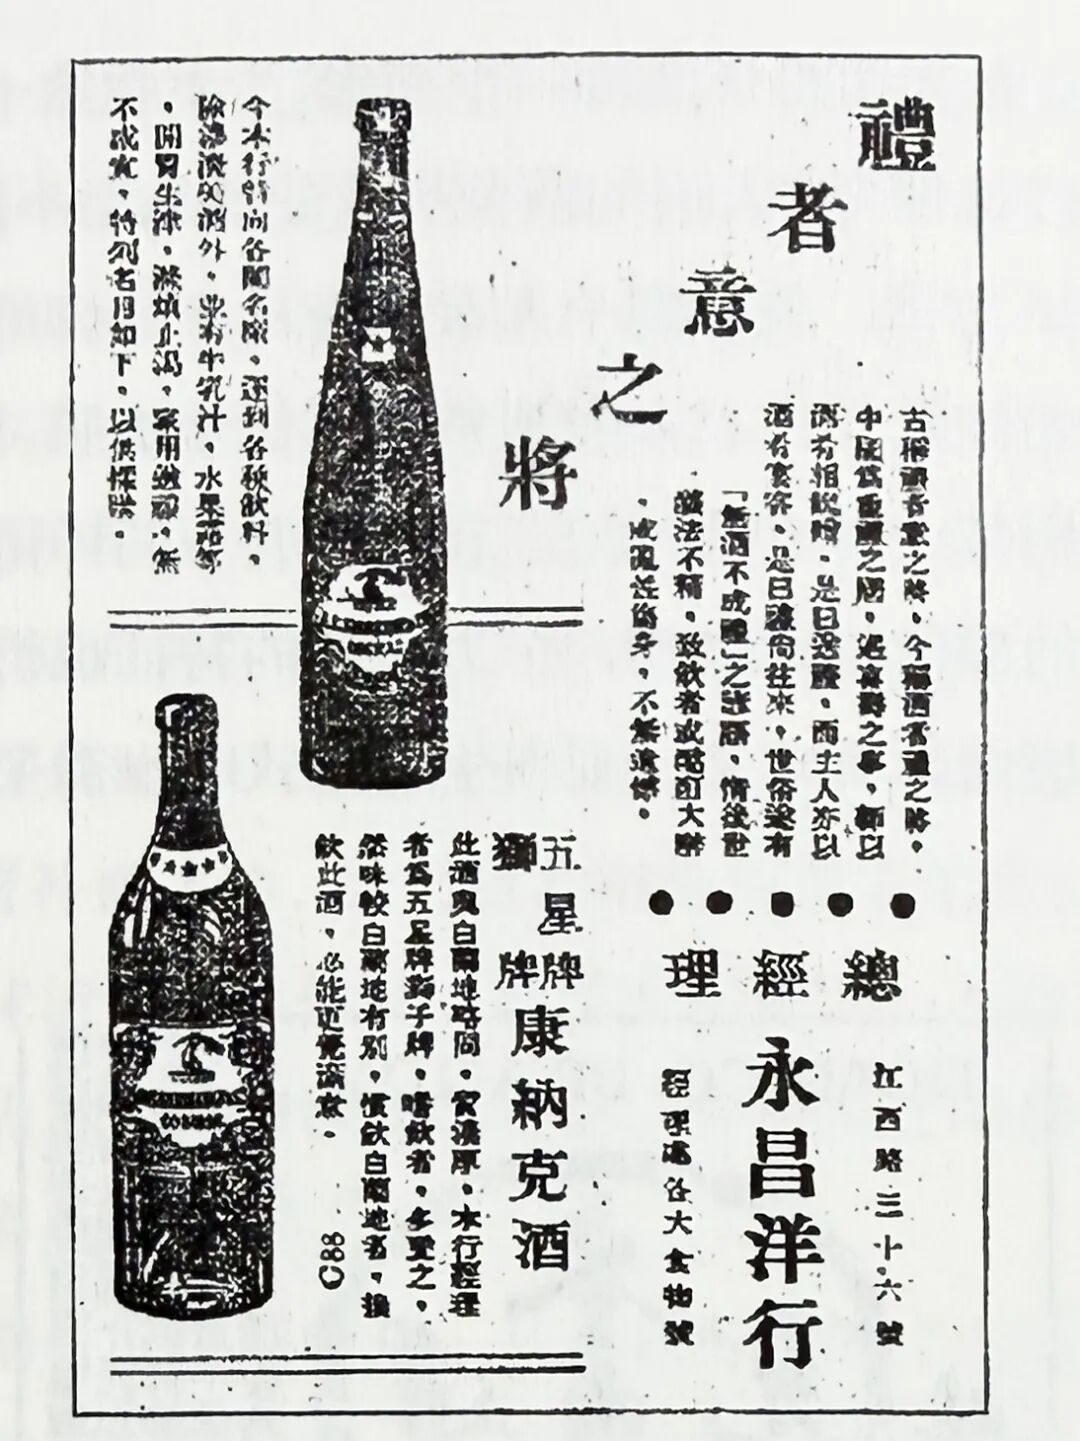 禮者意之將
古稱禮者意之將，今稱酒者禮之將。
中國爲重禮之國，遇喜壽之事，輒以
酒肴相餽贈，是曰送禮，而主人亦以
酒肴宴客，是曰禮尚往來，世俗遂有
「無酒不成禮」之
法不精，致飲者或酩酊大醉
，或 性 身，不無遺憾。
今本行特向各國名廠，運到各種飲料，
除 酒外，並有牛乳汁，水果 等
，開胃生津，滌煩止渴，家用 ，無
不咸宜，特列名目如下，以供採 。
五星牌
獅牌
康納克酒
此酒與白蘭地略同，質濃厚，本行經理
者爲五星牌獅子牌，嗜飲者，多愛之，
然味較白蘭地有別，慣飲白蘭地者，換
飲此酒，必能更覺滿意。
C88
總經理
江西路三十六號
永昌洋行
經理處各大食物號